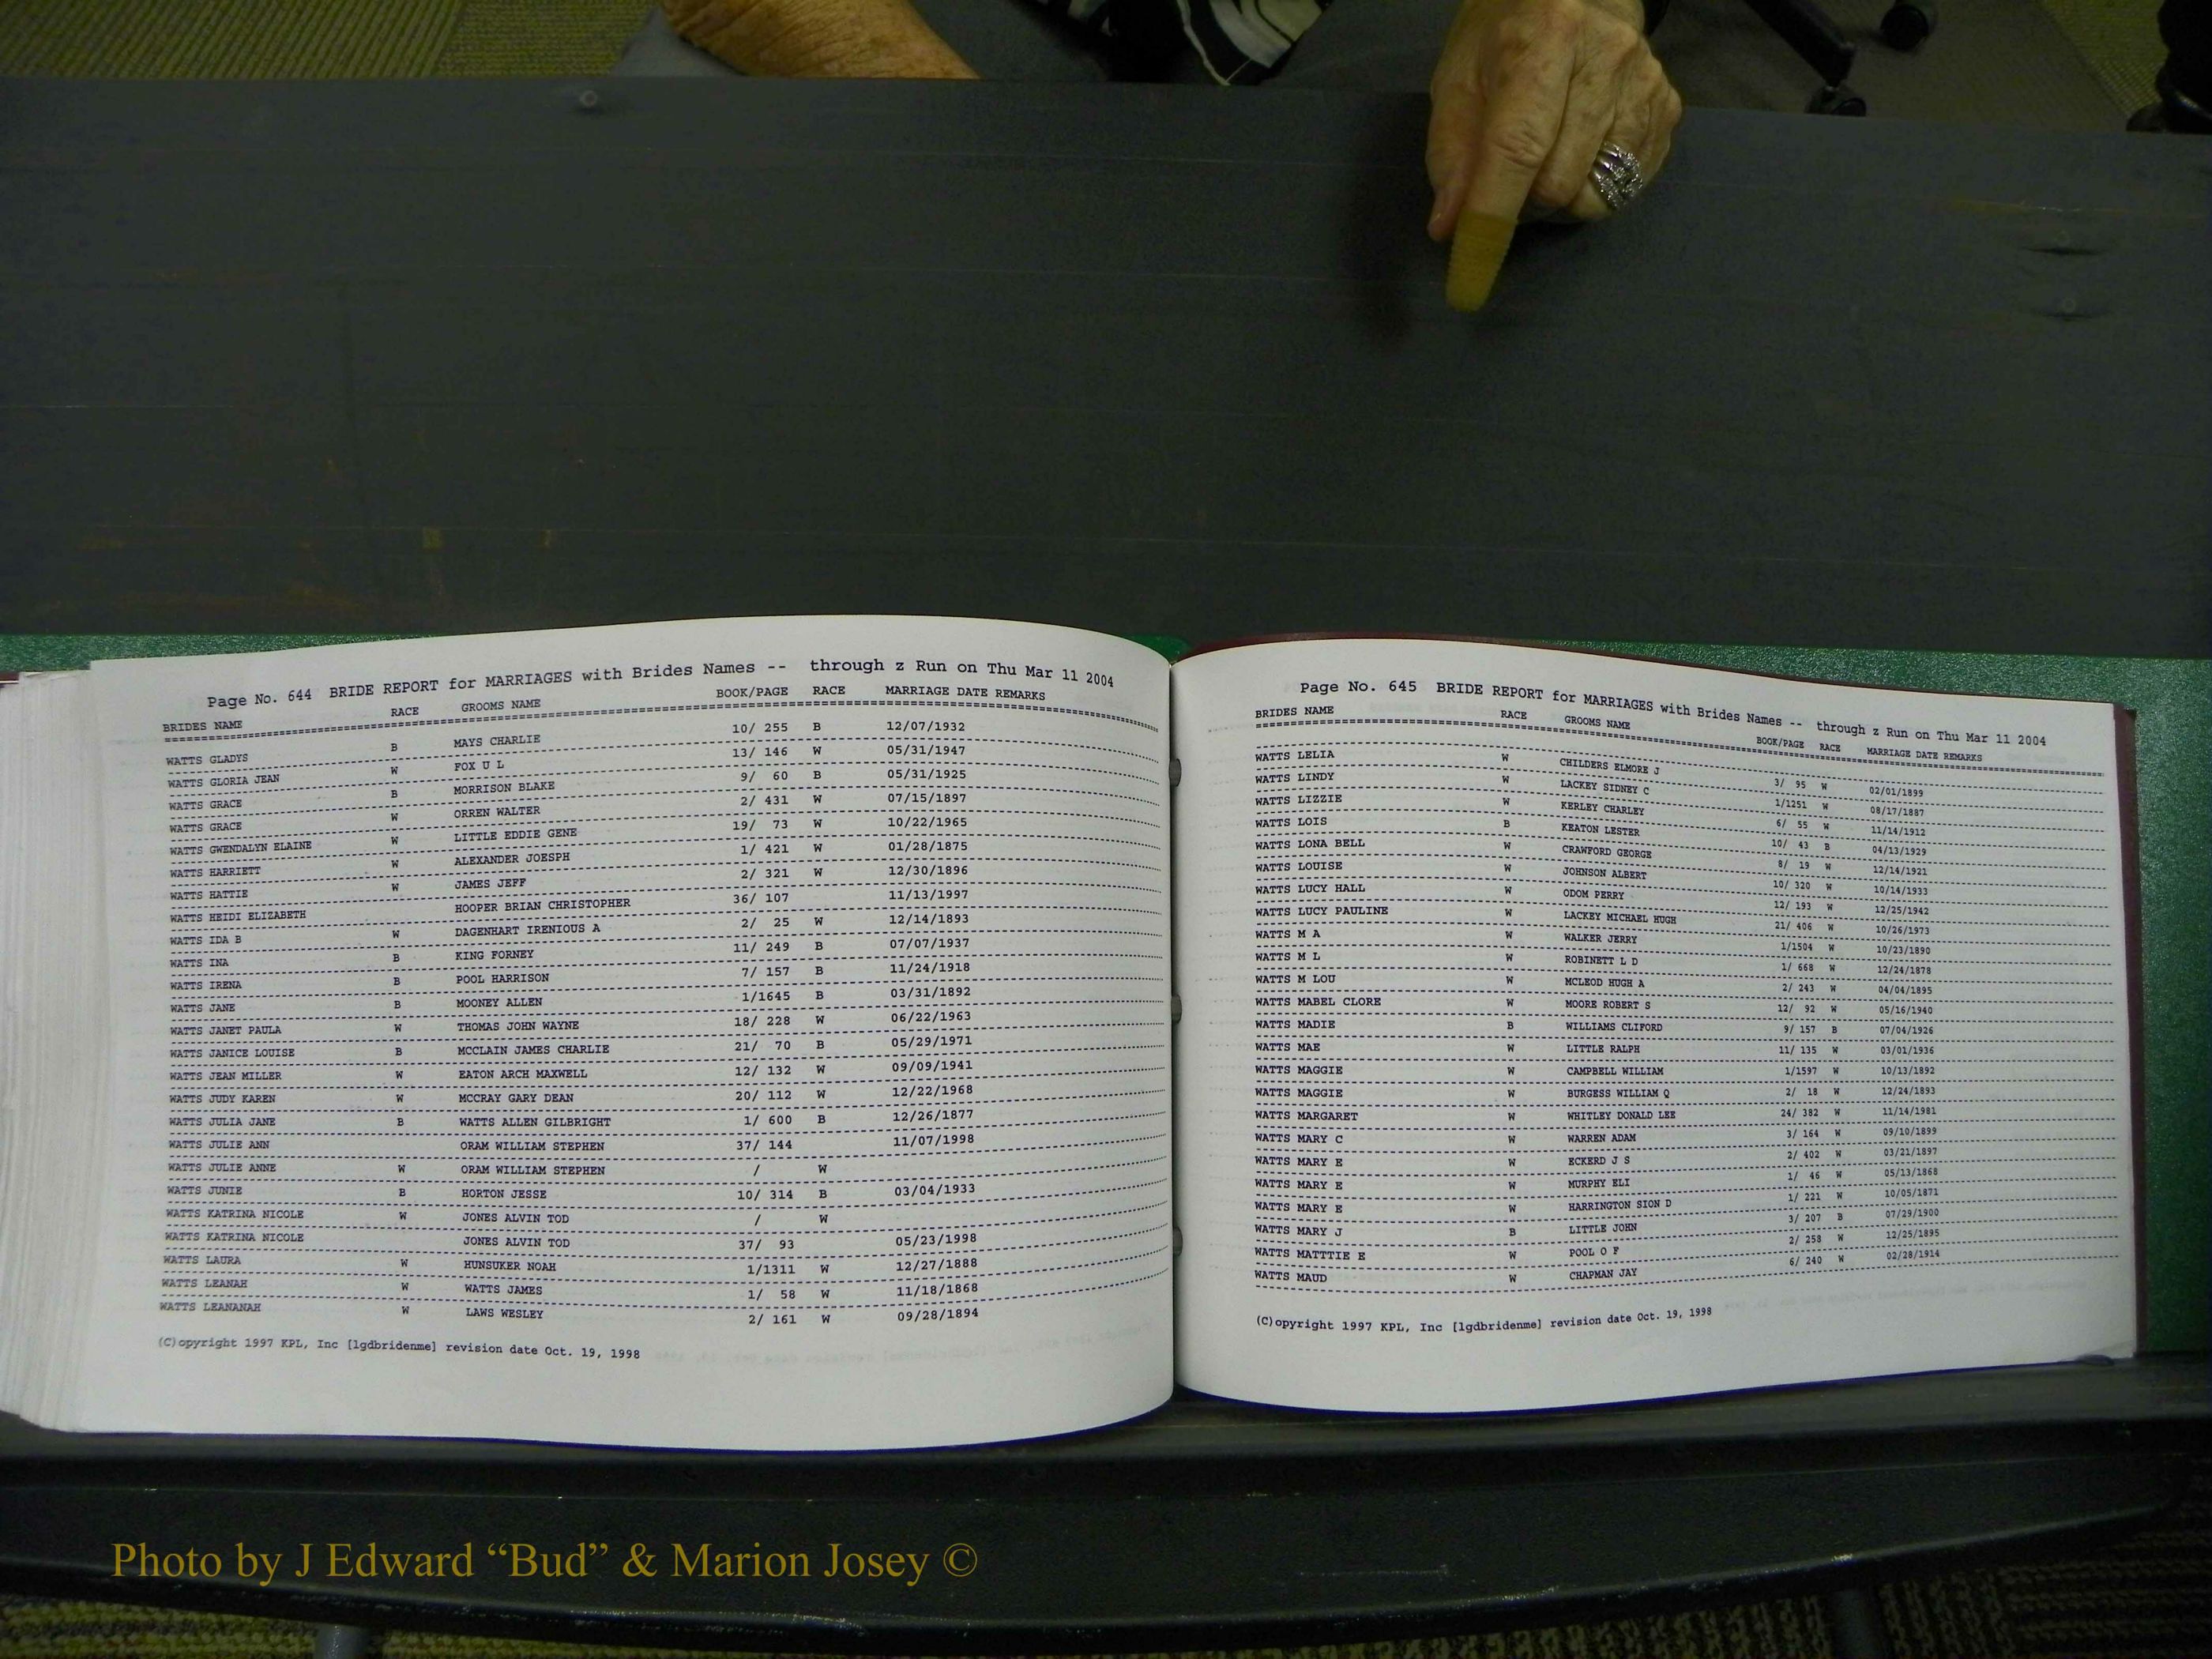 Page No. 644 BRIDE REPORT for MARRIAGES with Brides Names -- through z Run on Thu Mar 11 2004
BRIDES NAME RACE GROOMS NAME BOOK/PAGE RACE MARRIAGE DATE REMARKS
WATTS GLADYS B MAYS CHARLIE 10/ 255 B 12/07/1932
WATTS GLORIA JEAN W FOX U L 13/ 146 W 05/31/1947
WATTS GRACE B MORRISON BLAKE 9/ 60 B 05/31/1925
WATTS GRACE W ORREN WALTER 2/ 431 W 07/15/1897
WATTS GWENDALYN ELAINE W LITTLE EDDIE GENE 19/ 73 W 10/22/1965
WATTS HARRIETT W ALEXANDER JOESPH 1/ 421 W 01/28/1875
WATTS HATTIE W JAMES JEFF 2/ 321 W 12/30/1896
WATTS HEIDI ELIZABETH HOOPER BRIAN CHRISTOPHER 36/ 107 11/13/1997
WATTS IDA B W DAGENHART IRENIOUS A 2/ 25 W 12/14/1893
WATTS INA B KING FORNEY 11/ 249 B 07/07/1937
WATTS IRENA B POOL HARRISON 7/ 157 B 11/24/1918
WATTS JANE B MOONEY ALLEN 1/1645 B 03/31/1892
WATTS JANET PAULA W THOMAS JOHN WAYNE 18/ 228 W 06/22/1963
WATTS JANICE LOUISE B MCCLAIN JAMES CHARLIE 21/ 70 B 05/29/1971
WATTS JEAN MILLER W EATON ARCH MAXWELL 12/ 132 W 09/09/1941
WATTS JUDY KAREN W MCCRAY GARY DEAN 20/ 112 W 12/22/1968
WATTS JULIA JANE B WATTS ALLEN GILBRIGHT 1/ 600 B 12/26/1877
WATTS JULIE ANN ORAM WILLIAM STEPHEN 37/ 144 11/07/1998
WATTS JULIE ANNE W ORAM WILLIAM STEPHEN / W
WATTS JUNIE B HORTON JESSE 10/ 314 B 03/04/1933
WATTS KATRINA NICOLE W JONES ALVIN TOD / W
WATTS KATRINA NICOLE JONES ALVIN TOD 37/ 93 05/23/1998
WATTS LAURA W HUNSUKER NOAH 1/1311 W 12/27/1888
WATTS LEANAH W WATTS JAMES 1/ 58 W 11/18/1868
WATTS LEANANAH W LAWS WESLEY 2/ 161 W 09/28/1894
(C)opyright 1997 KPL, Inc [lgdbridenme] revision date Oct. 19, 1998
Page No. 645 BRIDE REPORT for MARRIAGES with Brides Names -- through z Run on Thu Mar 11 2004
BRIDES NAME RACE GROOMS NAME BOOK/PAGE RACE MARRIAGE DATE REMARKS
WATTS LELIA W CHILDERS ELMORE J 3/ 95 W 02/01/1899
WATTS LINDY W LACKEY SIDNEY C 1/1251 W 08/17/1887
WATTS LIZZIE W KERLEY CHARLEY 6/ 55 W 11/14/1912
WATTS LOIS B KEATON LESTER 10/ 43 B 04/13/1929
WATTS LONA BELL W CRAWFORD GEORGE 8/ 19 W 12/14/1921
WATTS LOUISE W JOHNSON ALBERT 10/ 320 W 10/14/1933
WATTS LUCY HALL W ODOM PERRY 12/ 193 W 12/25/1942
WATTS LUCY PAULINE W LACKEY MICHAEL HUGH 21/ 406 W 10/26/1973
WATTS M A W WALKER JERRY 1/1504 W 10/23/1890
WATTS M L W ROBINETT L D 1/ 668 W 12/24/1878
WATTS M LOU W MCLEOD HUGH A 2/ 243 W 04/04/1895
WATTS MABEL CLORE W MOORE ROBERT S 12/ 92 W 05/16/1940
WATTS MADIE B WILLIAMS CLIFORD 9/ 157 B 07/04/1926
WATTS MAE W LITTLE RALPH 11/ 135 W 03/01/1936
WATTS MAGGIE W CAMPBELL WILLIAM 1/1597 W 10/13/1892
WATTS MAGGIE W BURGESS WILLIAM Q 2/ 18 W 12/24/1893
WATTS MARGARET W WHITLEY DONALD LEE 24/ 382 W 11/14/1981
WATTS MARY C W WARREN ADAM 3/ 164 W 09/10/1899
WATTS MARY E W ECKERD J S 2/ 402 W 03/21/1897
WATTS MARY E W MURPHY ELI 1/ 46 W 05/13/1868
WATTS MARY E W HARRINGTON SION D 1/ 221 W 10/05/1871
WATTS MARY J B LITTLE JOHN 3/ 207 B 07/29/1900
WATTS MATTTIE E W POOL O F 2/ 258 W 12/25/1895
WATTS MAUD W CHAPMAN JAY 6/ 240 W 02/28/1914
(C)opyright 1997 KPL, Inc [lgdbridenme] revision date Oct. 19, 1998
Photo by J Edward “Bud” & Marion Josey ©